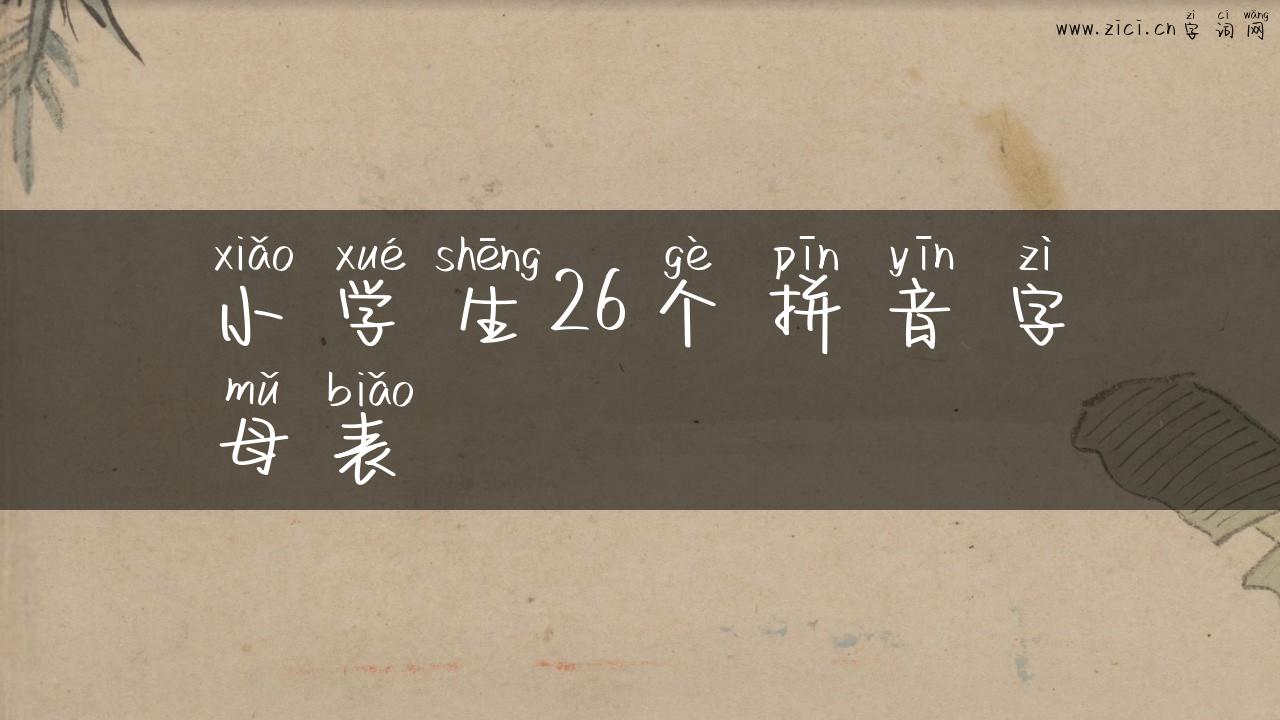 zì cí wǎng
www.zici.cn 字词网
xiǎo xué shēng gè pīn yīn zì
小学生26个拼音字
mǔ biǎo
母表